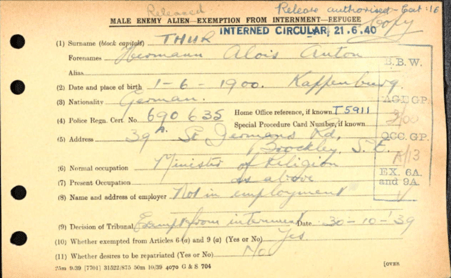 Released
Release authorised - Cat 16
Copy
MALE ENEMY ALIEN—EXEMPTION FROM INTERNMENT—REFUGEE
INTERNED CIRCULAR 21.6.40
(1) Surname (block capitals) THUR
Forenames Hermann Alois Anton
Alias
(2) Date and place of birth 1-6-1900. Kappenburg.
(3) Nationality German.
(4) Police Regn. Cert. No 690635 Home Office reference, if known T5911
Special Procedure Card Number, if known
(5) Address 39A. St Germans Rd,
Brockley, S.E.
(6) Normal occupation Minister of Religion
(7) Present Occupation as above
(8) Name and address of employer Not in employment
(9) Decision of Tribunal Exempt from internment Date 30-10-39
(10) Whether exempted from Articles 6(a) and 9 (a) (Yes or No) Yes
(11) Whether desires to be repatriated (Yes or No) No
B.B.W.
AGE GP.
OCC. GP.
A/13
EX. 6A
and 9A
[OVER.